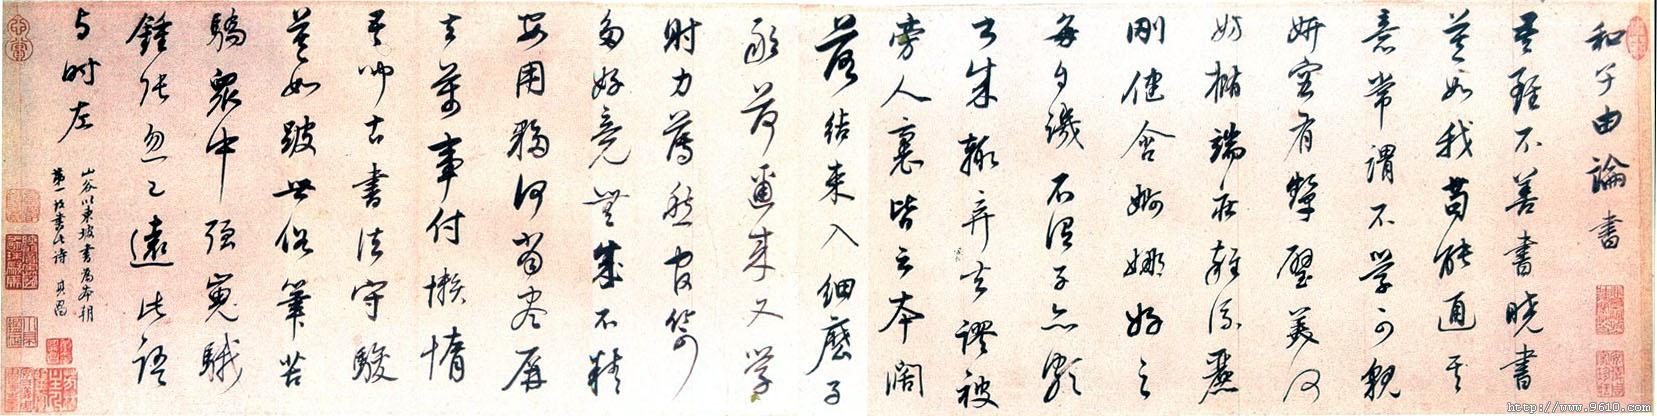 和子由論書
吾雖不善書曉書
莫如我苟能通其
意常謂不學可貌
妍容有顰璧美何
妨橢端莊雜流麗
剛健含婀娜好之
每自譏不謂子亦頗
書成輒棄去謬被
旁人裹皆云本闊
落結束入細麼子
敢荷邇來又學
射力薄愁官笴
多好竟無成不精
安用夥何當盡屏
去萬事付懶惰
吾聞古書法守駿
莫如跛世俗筆苦
驕眾中強嵬騀
鍾張忽已遠此語
與時左
山谷以東坡書為本朝
第一坡書此詩 其昌
http://www.9610.com